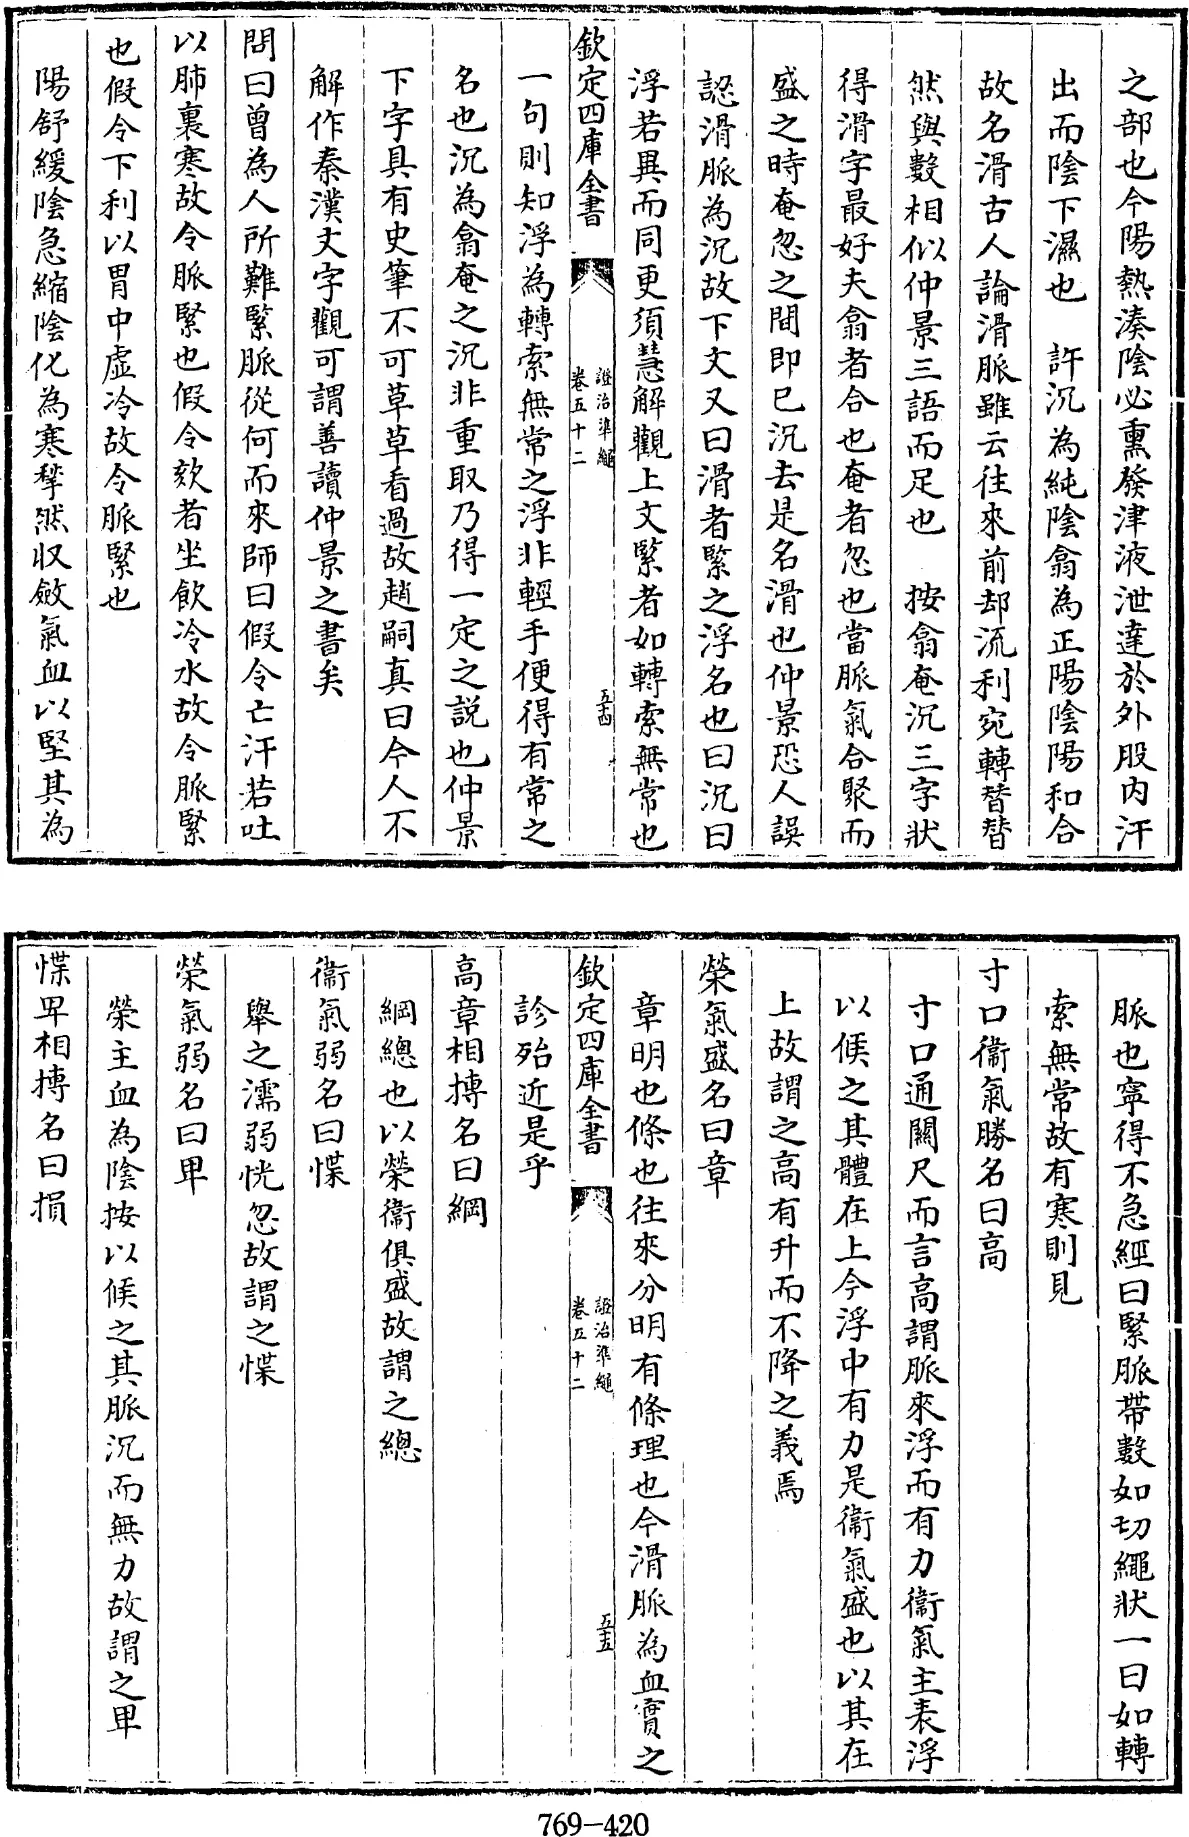 之部也今陽熱湊陰必熏發津液泄達於外股内汗
出而陰下濕也　許沉為純陰翕為正陽陰陽和合
故名滑古人論滑脈雖云往來前却流利宛轉替替
然與數相似仲景三語而足也　按翕奄沉三字狀
得滑字最好夫翕者合也奄者忽也當脈氣合聚而
盛之時奄忽之間即已沉去是名滑也仲景恐人誤
認滑脈為沉故下文又曰滑者緊之浮名也曰沉曰
浮若異而同更須慧解觀上文緊者如轉索無常也
欽定四庫全書
證治準繩
卷五十二
五十四
一句則知浮為轉索無常之浮非輕手便得有常之
名也沉為翕奄之沉非重取乃得一定之説也仲景
下字具有史筆不可草草看過故趙嗣真曰今人不
解作秦漢文字觀可謂善讀仲景之書矣
問曰曾為人所難緊脈從何而來師曰假令亡汗若吐
以肺裏寒故令脈緊也假令欬者坐飲冷水故令脈緊
也假令下利以胃中虛冷故令脈緊也
陽舒緩陰急縮陰化為寒㪍然收斂氣血以堅其為
脈也寧得不急經曰緊脈帶數如切繩狀一曰如轉
索無常故有寒則見
寸口衞氣勝名曰高
寸口通關尺而言高謂脈來浮而有力衞氣主表浮
以候之其體在上今浮中有力是衞氣盛也以其在
上故謂之高有升而不降之義焉
榮氣盛名曰章
章明也條也往來分明有條理也今滑脈為血實之
欽定四庫全書
證治準繩
卷五十二
五十五
診殆近是乎
高章相搏名曰綱
綱總也以榮衞俱盛故謂之總
衞氣弱名曰惵
舉之濡弱恍忽故謂之惵
榮氣弱名曰卑
榮主血為陰按以候之其脈沉而無力故謂之卑
惵卑相搏名曰損
769-420